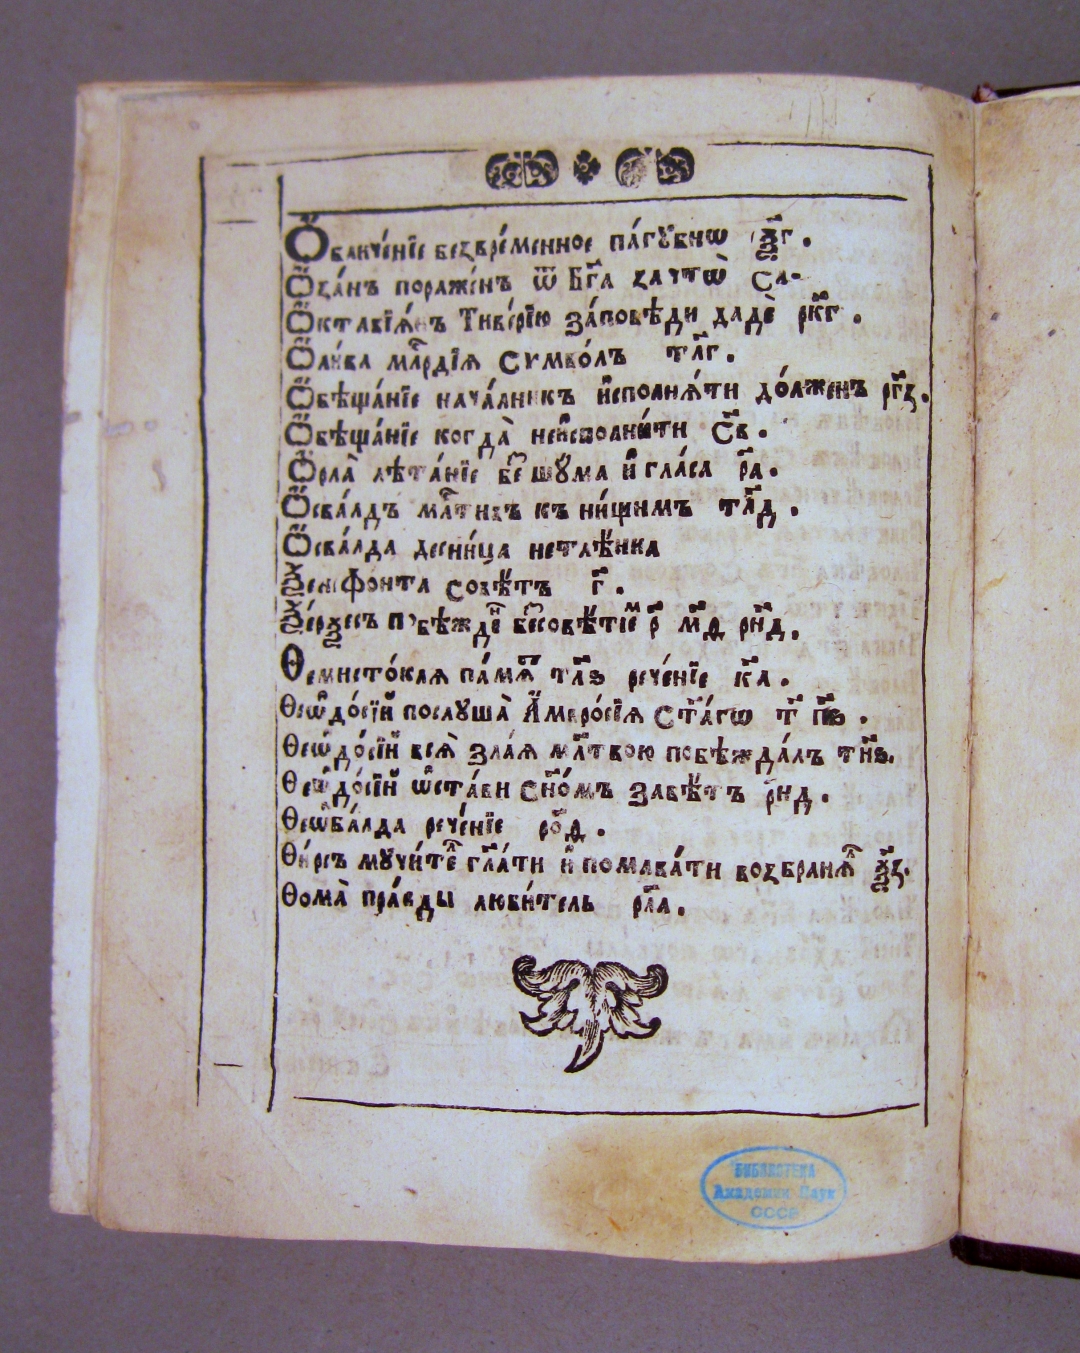 Ѻ҆блече́нїе безвре́менное па́гꙋбнѡ ѯ҃г.
Ѻ҆за́нъ пораже́нъ ѿ Бг҃а
Ѻ҆ктавїѧ́нъ Тиве́рїю за́повѣди дадѐ рк҃г.
мл҃рдїѧ сѷмво́лъ тл҃г.
Ѻ҆бѣща́нїе нача́лникъ и҆сполнѧ́ти до́лженъ рг҃з.
Ѻ҆бѣща́нїе когда̀ неи҆сполнѧ́ти с҃в.
Ѻ҆рла̀ лѣта́нїе беⷥ шꙋ́ма и҆ гла́са р҃а.
Ѻ҆сва́лдъ мл҃тивъ къ ни́щимъ тл҃д.
Ѻ҆сва́лда десни́ца нетлѣ́нна
Ѯенофо́нта совѣ́тъ г҃.
Ѯе́рѯесъ побѣжде́нъ
Ѳемисто́клѧ па́мѧⷮ рече́нїе к҃а.
Ѳеѡдо́сїй послꙋша̀ А҆мвро́сїѧ ст҃а́гѡ т҃ пн҃в.
Ѳеѡдо́сїй всѧ̀ зла́ѧ мл҃твою побѣжда́лъ тн҃в.
Ѳеѡдо́сїй ѡ҆ста́ви сн҃о́мъ завѣ́тъ рн҃д.
Ѳеѡба́лда рече́нїе ро҃д.
Ѳи́ръ мꙋчи́теⷧ гл҃ати и҆ помава́ти возбранѧⷧ ѯ҃з.
Ѳома̀ пра́вды люби́тель рл҃а.
БИБЛИОТЕКА
Академии Наук
СССР